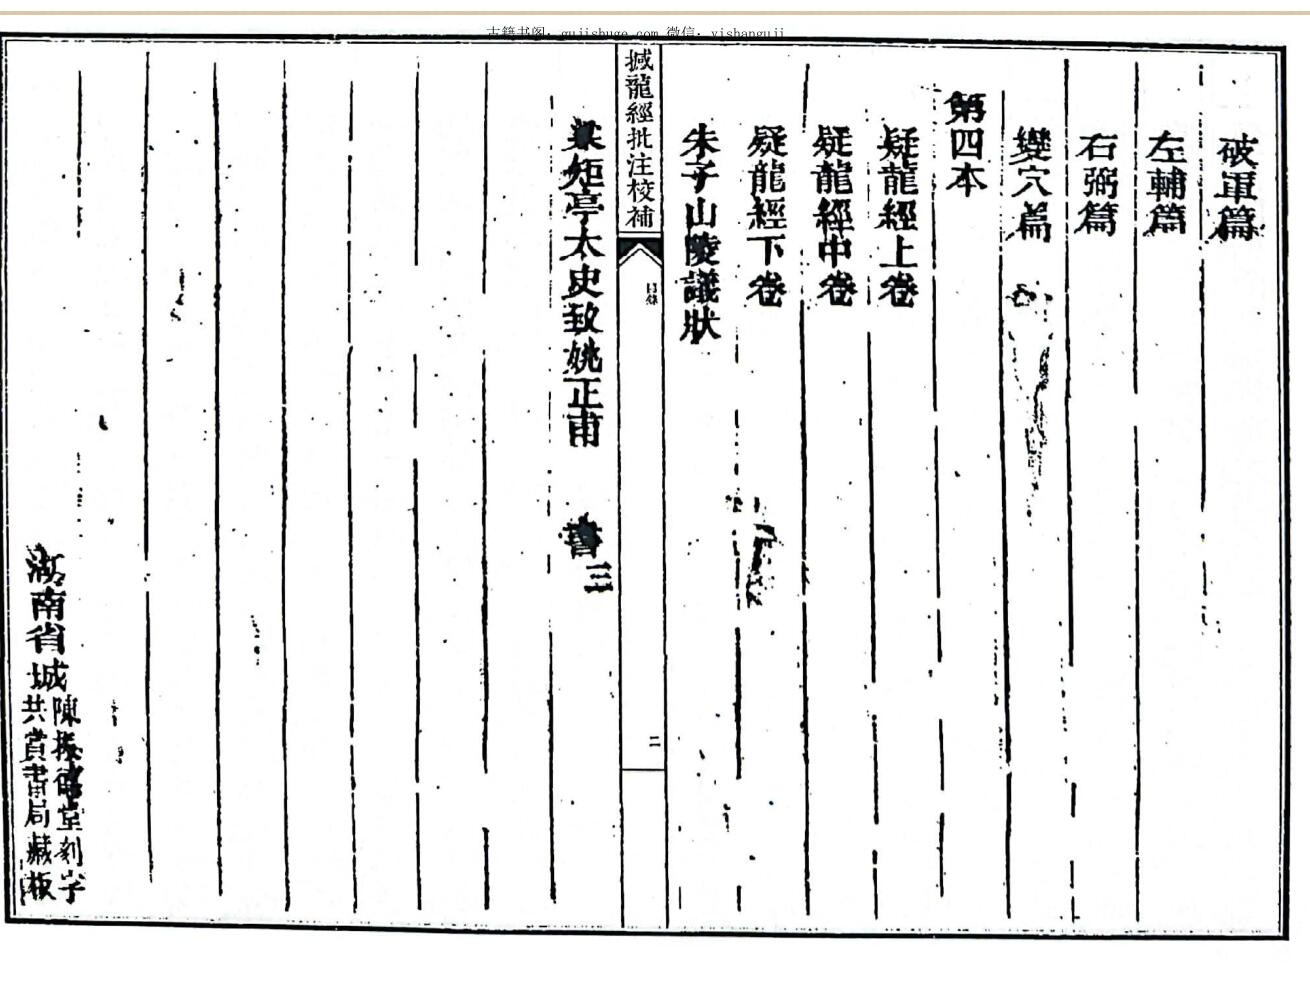 古籍书阁：gujishuge.com 微信：yishanguji
破軍篇
左輔篇
右弼篇
變穴篇
第四本
疑龍經上卷
疑龍經中卷
疑龍經下卷
朱子山陵議狀
撼龍經批注校補
目錄
二
梁矩亭太史致姚正甫 書三
湖南省城
陳振 堂刻字
共賞書局藏板